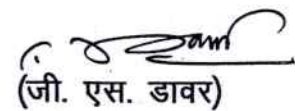 (जी. एस. डावर)